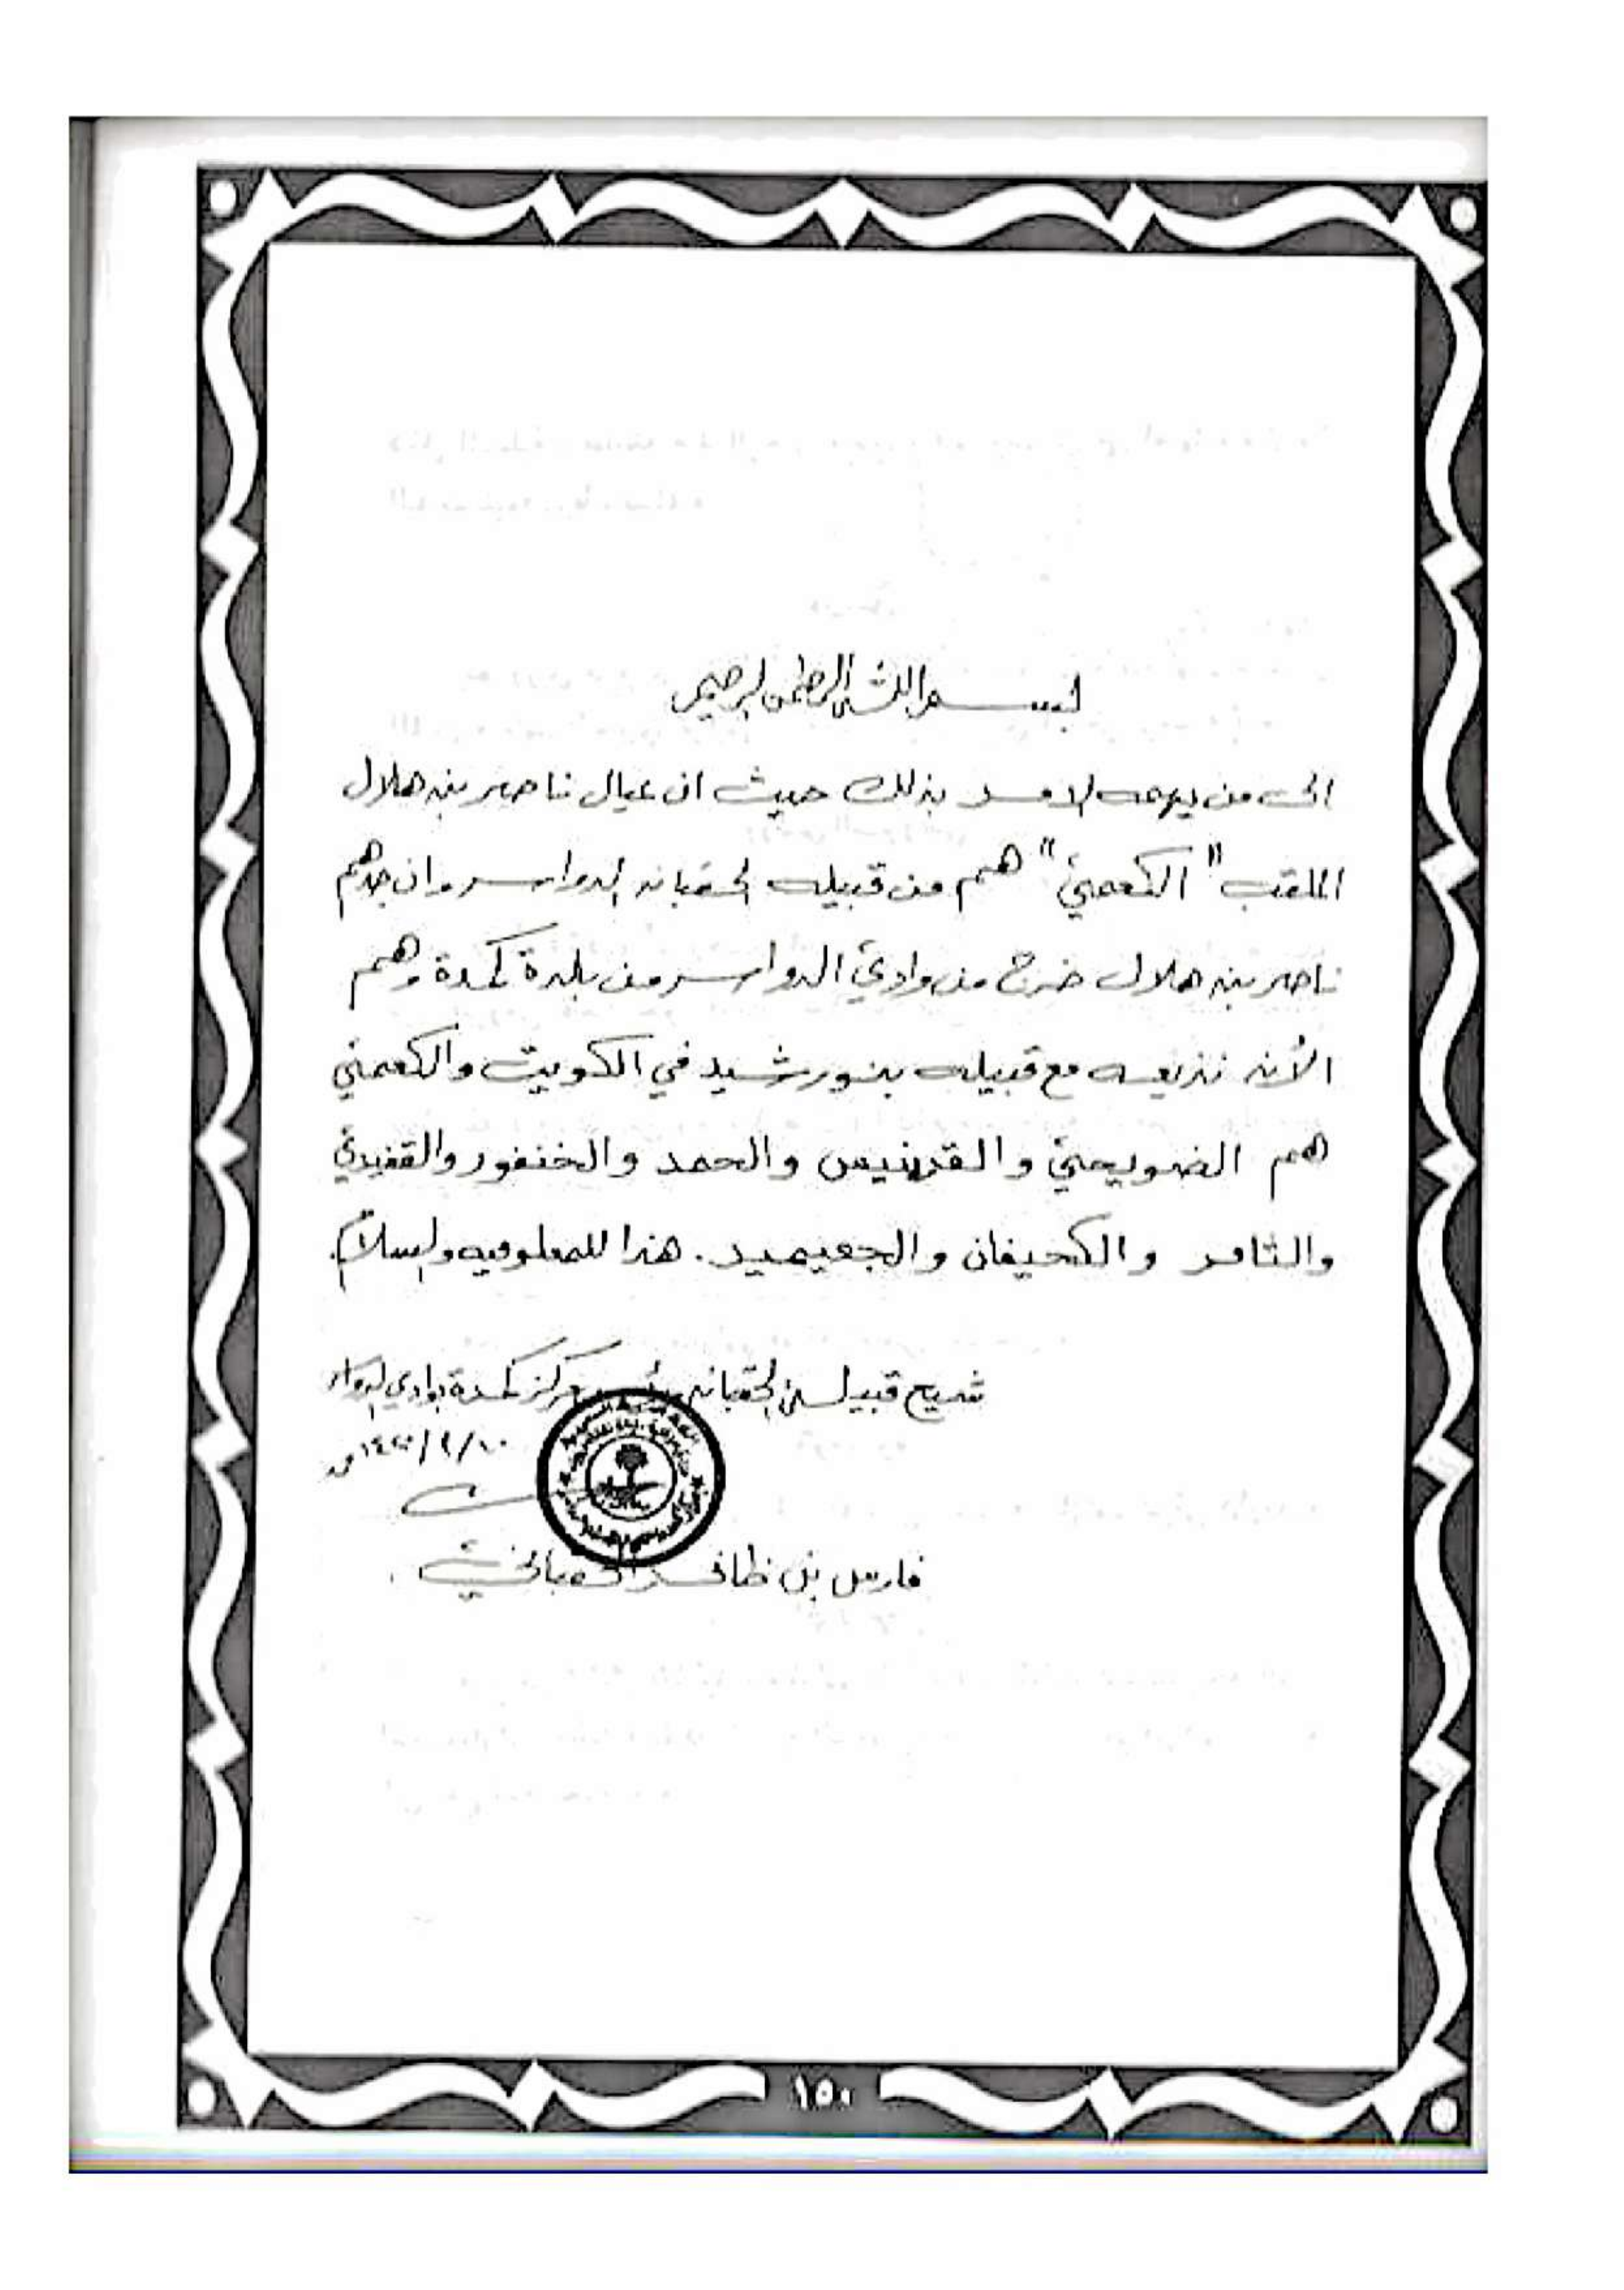 بسم الله الرحمن الرحيم
الى من يهمه الامر بذلك حيث ان عيال ناصر بن هلال
الملقب "الكعمي" هم من قبيله الحقبان الدواسر وان جدهم
ناصر بن هلال خرج من وادي الدواسر من بلدة كمدة وهم
الأن نزيعه مع قبيله بنو رشيد في الكويت والكعمي
هم الضويحي والقرينيس والحمد والخنفور والقفيدي
والثامر والكحيفان والجعيميد. هذا للمعلوميه والسلام.
شيخ قبيلة الحقبان رئيس مركز كمدة بوادي الدواسر
فارس بن ظافر الحقباني
١٥٠